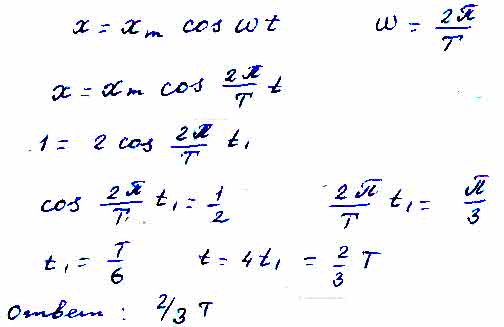 x = xₘ cos ωt    ω = 2π/T
x = xₘ cos 2π/T t
1 = 2 cos 2π/T t₁
cos 2π/T t₁ = 1/2    2π/T t₁ = π/3
t₁ = T/6    t = 4t₁ = 2/3 T
Ответ : 2/3 T